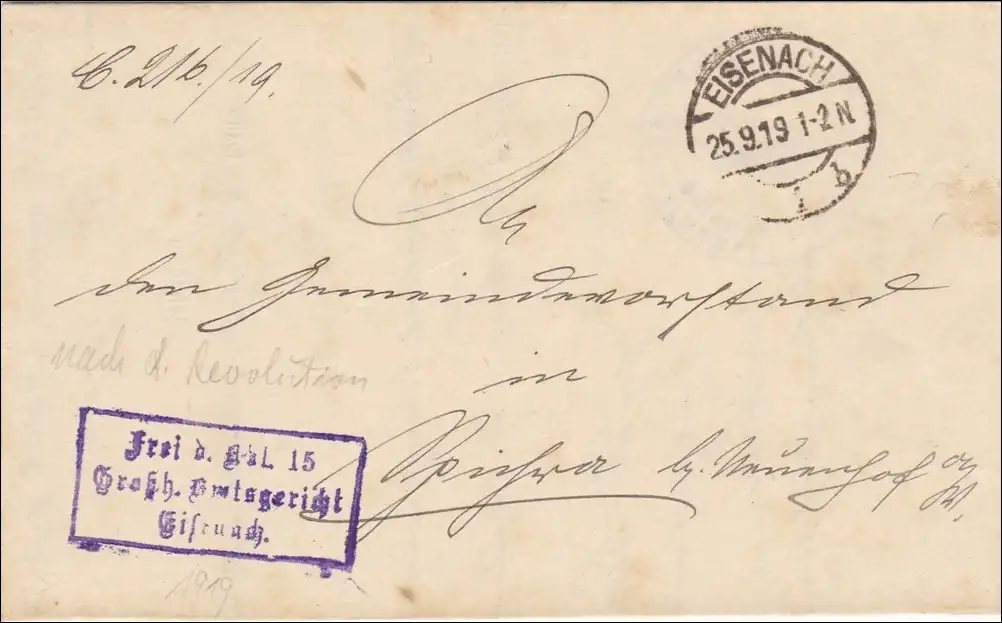 C. 216./19.
EISENACH
25.9.19 1-2 N.
1 b
An
den Gemeindevorstand
nach d. Revolution
in
Spichra b. Neuenhof a/W.
Frei d. Abl. 15
Großh. Amtsgericht
Eisenach.
1919